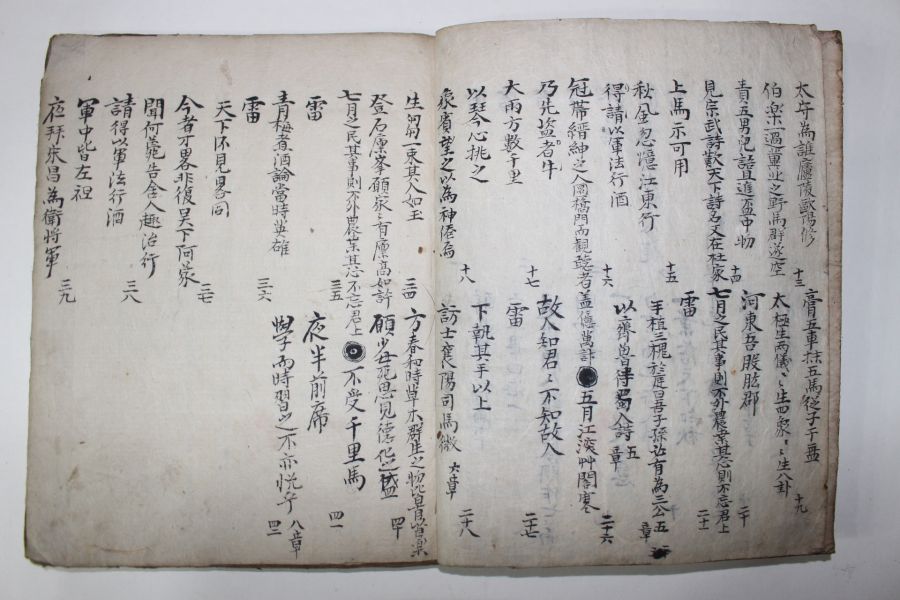 太守為誰廬陵歐陽修 十三 膏五車抹五馬從子千盤 十九
伯樂一過冀北之野馬群遂空 太極生兩儀〻〻生四象〻〻生八卦
責五男兒 且進盃中物 十四 河東吾股肱郡 二十
見宗武詩歎天下詩名又在杜家 七月之民其事則不外農業其志則不忘君上 二十一
上馬示可用 十五 雷
秋風忽憶江東行 手植三槐於庭曰吾子孫必有為三公 五章
得請以軍法行酒 十六 以齊魯待蜀人詩 五章
冠帶縉紳之人圜橋門而觀聽者盖億萬計 五月江深艸閣寒 二十六
乃先盜者牛
大雨方數千里 十七 雷 故人知君〻不知故人 二十七
以琴心挑之 下執其手以上
象賓望之以為神僊焉 十八 訪士襄陽司馬徽 六章 二十八
生芻一束其人如玉 三四 方春和時草木群生之物皆有以自樂
登石廩峯願泉之有廩高如許 願少毋死思見德化之盛 四十
七月之民其事則不外農業其志不忘君上 不受千里馬
雷 三五 夜半前席 四一
青梅煮酒論當時英雄 學而時習之不亦悅乎 八章
雷 三六 四二
天下不見畧同
今者才畧非復吳下阿蒙 三七
聞何薨告舍人趣治行
請得以軍法行酒 三八
軍中皆左袒
夜拜宋昌為衛將軍 三九